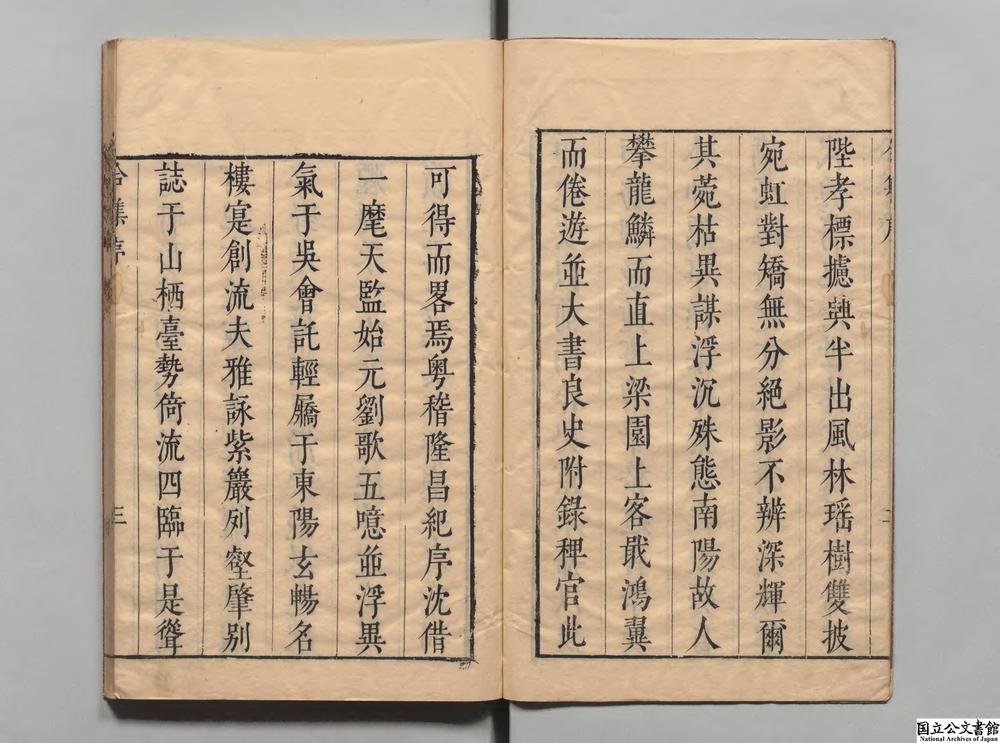 陛孝標攄興半出風林瑶樹雙披
宛虹對矯無分絕影不辨深輝爾
其菀枯異謀浮沉殊態南陽故人
攀龍鱗而直上梁園上客戢鴻翼
而倦遊並大書良史附錄稗官此
可得而畧焉粤稽隆昌紀序沈借
一麾天監始元劉歌五噫並浮異
氣于吳會託輕屩于東陽玄暢名
樓寔創流夫雅詠紫巖列壑肇別
誌于山栖臺勢倚流四臨于是聳
合集序
三
国立公文書館
National Archives of Japan